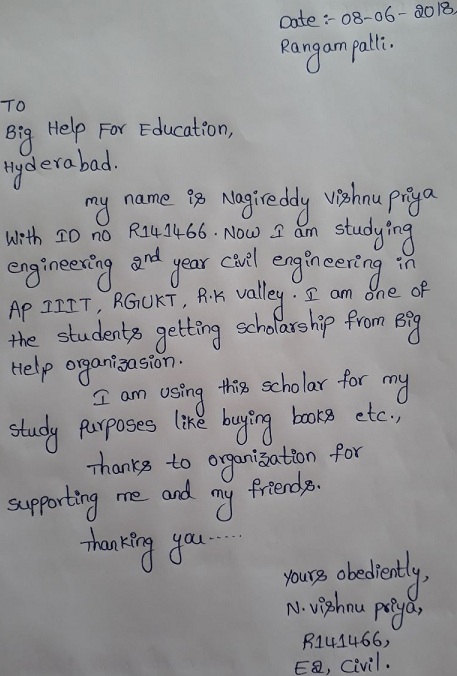 Date :- 08-06-2018
Rangampalli.
TO
Big Help For Education,
Hyderabad.
my name is Nagireddy Vishnu Priya
With ID no R141466. Now I am studying
engineering 2nd year civil engineering in
AP IIIT, RGUKT, R.K valley. I am one of
the students getting scholarship from Big
Help organizasion.
I am using this scholar for my
study purposes like buying books etc.,
Thanks to organization for
supporting me and my friends.
Thanking you.....
yours obediently,
N. Vishnu priya,
R141466,
E2, Civil.